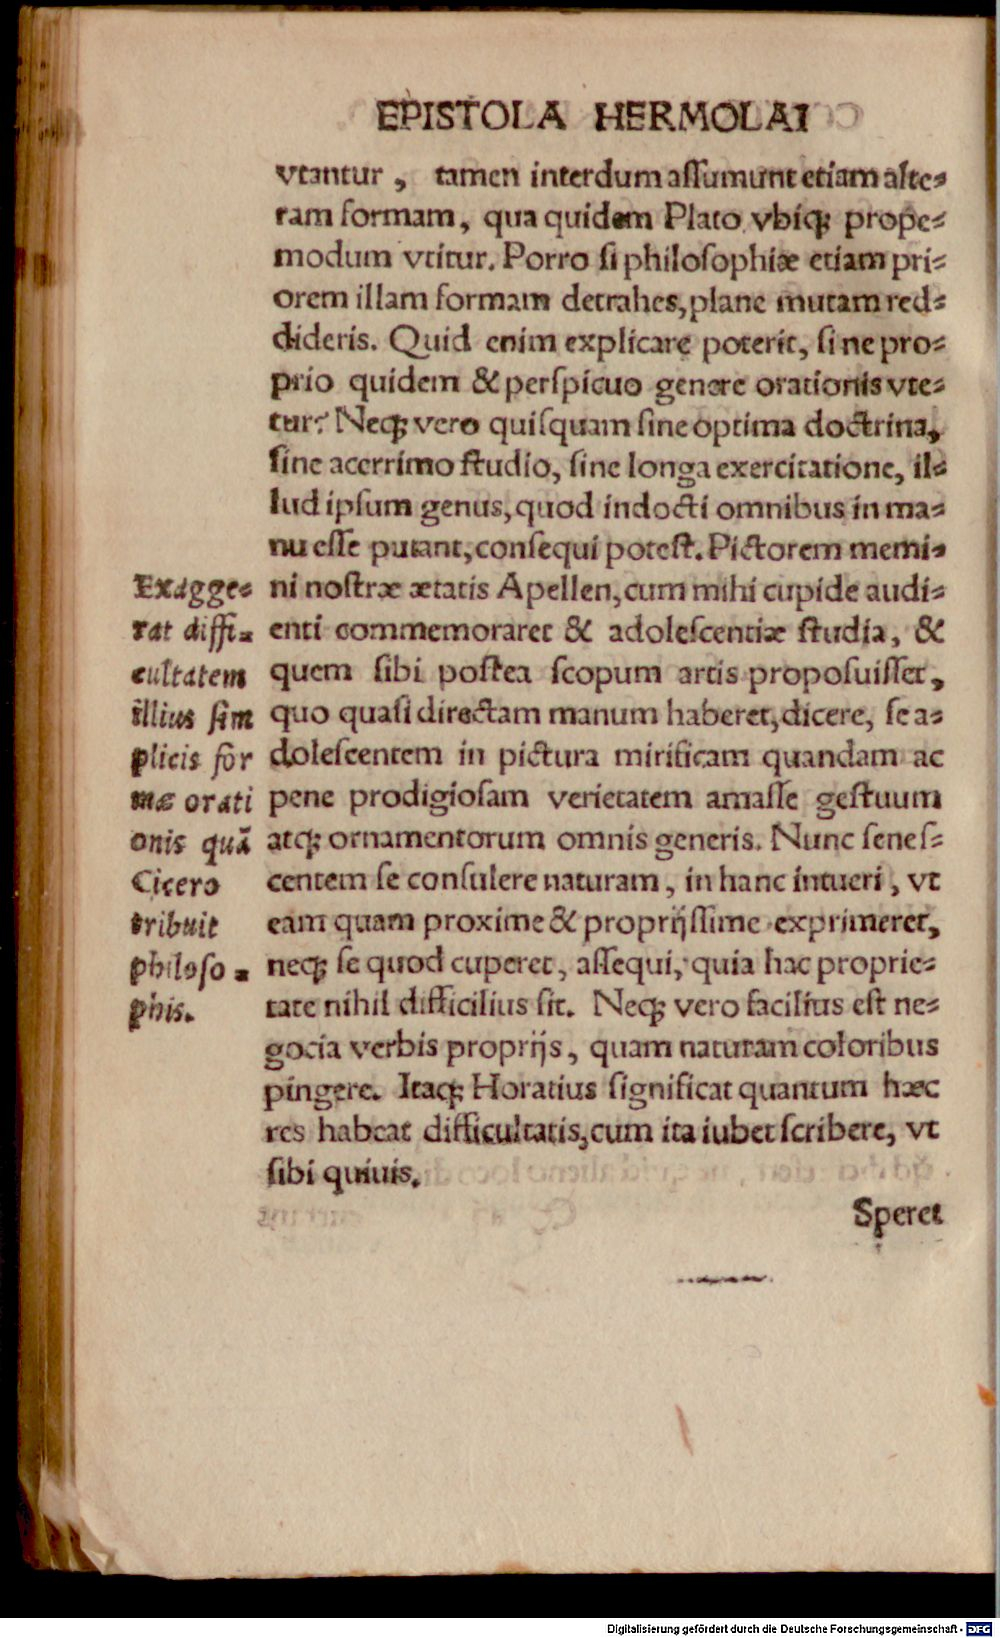 EPISTOLA HERMOLAI
vtantur, tamen interdum assumunt etiam alte-
ram formam, qua quidem Plato vbiq; prope-
modum vtitur. Porro si philosophiæ etiam pri-
orem illam formam detrahes, plane mutam red-
dideris. Quid enim explicare poterit, si ne pro-
prio quidem & perspicuo genere orationis vte-
tur? Neq; vero quisquam sine optima doctrina,
sine acerrimo studio, sine longa exercitatione, il-
lud ipsum genus, quod indocti omnibus in ma-
nu esse putant, consequi potest. Pictorem memi-
ni nostræ ætatis Apellen, cum mihi cupide audi-
enti commemoraret & adolescentiæ studia, &
quem sibi postea scopum artis proposuisset,
quo quasi directam manum haberet, dicere, se a-
dolescentem in pictura mirificam quandam ac
pene prodigiosam verietatem amasse gestuum
atq; ornamentorum omnis generis. Nunc senes-
centem se consulere naturam, in hanc intueri, vt
eam quam proxime & proprijssime exprimeret,
neq; se quod cuperet, assequi, quia hac proprie-
tate nihil difficilius sit. Neq; vero facilius est ne-
gocia verbis proprijs, quam naturam coloribus
pingere. Itaq; Horatius significat quantum hæc
res habeat difficultatis, cum ita iubet scribere, vt
sibi quiuis.
Speret
Exagge-
rat diffi-
cultatem
illius sim
plicis for
mæ orati
onis quã
Cicero
tribuit
philoso-
phis.
Digitalisierung gefördert durch die Deutsche Forschungsgemeinschaft - DFG